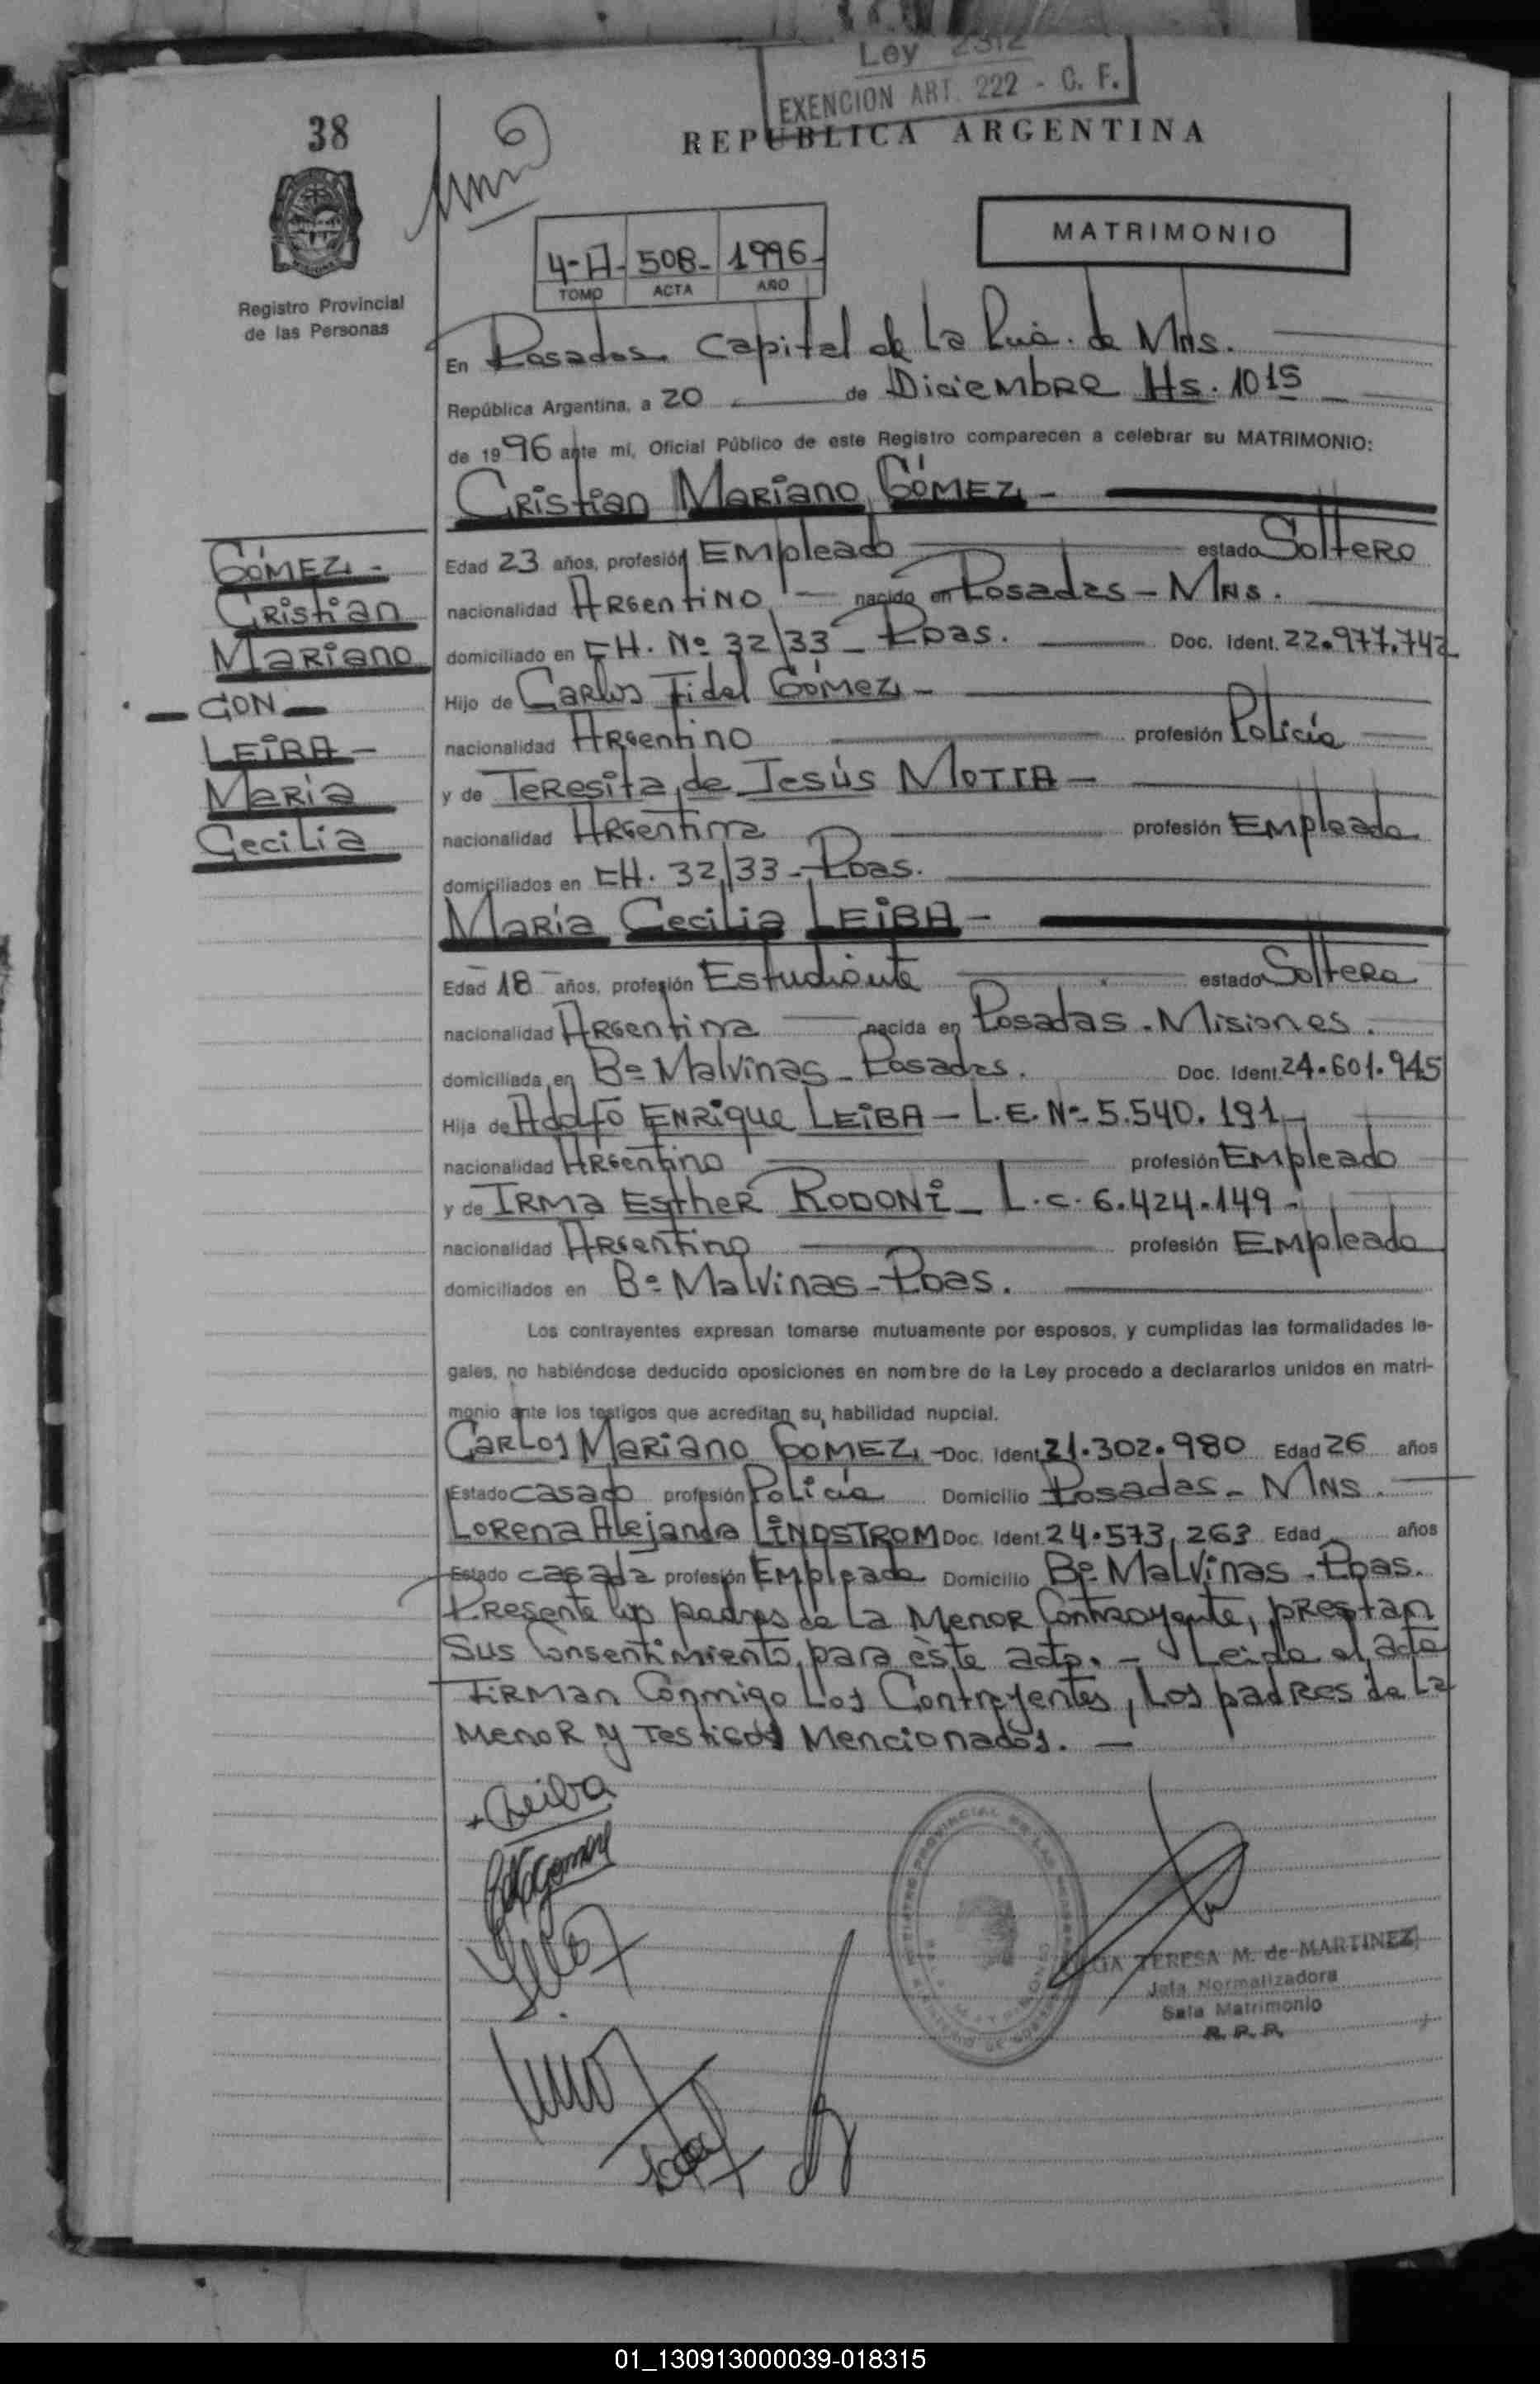 Ley 2312
EXENCION ART. 222 - C. F.
38
REPUBLICA ARGENTINA
MATRIMONIO
4-A- 508- 1996-
TOMO ACTA AÑO
Registro Provincial
de las Personas
En Posadas Capital de La Pcia. de Mns.
República Argentina, a 20 de Diciembre Hs. 1015
de 1996 ante mí, Oficial Público de este Registro comparecen a celebrar su MATRIMONIO:
Cristian Mariano GÓMEZ -
GÓMEZ -
Cristian
Mariano
- CON -
LEIBA -
María
Cecilia
Edad 23 años, profesión Empleado estado Soltero
nacionalidad Argentino nacido en Posadas - Mns.
domiciliado en CH. Nº 32/33 - Pdas. Doc. Ident. 22.977.742
Hijo de Carlos Fidel Gómez -
nacionalidad Argentino profesión Policía
y de Teresita de Jesús MOTTA -
nacionalidad Argentina profesión Empleada
domiciliados en CH. 32/33 - Pdas.
María Cecilia LEIBA -
Edad 18 años, profesión Estudiante estado Soltera
nacionalidad Argentina nacida en Posadas - Misiones.
domiciliada en Bº Malvinas - Posadas. Doc. Ident. 24.601.945
Hija de Adolfo Enrique LEIBA - L.E. Nº 5.540.191 -
nacionalidad Argentino profesión Empleado
y de Irma Esther RODONI - L.C. 6.424.149 -
nacionalidad Argentino profesión Empleada
domiciliados en Bº Malvinas - Pdas.
Los contrayentes expresan tomarse mutuamente por esposos, y cumplidas las formalidades le-
gales, no habiéndose deducido oposiciones en nombre de la Ley procedo a declararlos unidos en matri-
monio ante los testigos que acreditan su habilidad nupcial.
Carlos Mariano GOMEZ - Doc. Ident. 21.302.980 Edad 26 años
Estado casado profesión Policía Domicilio Posadas - Mns.
Lorena Alejanda LINDSTROM Doc. Ident. 24.573,263 Edad años
Estado casada profesión Empleada Domicilio Bº Malvinas - Pdas.
Presente los padres de La Menor Contrayente, prestan
Sus Consentimiento, para éste acto. - Leida el acta
Firman Conmigo Los Contrayentes, Los padres de La
Menor y Testigos Mencionados. -
Leiba
Gomez
TERESA M. de MARTINEZ
Jefa Normalizadora
Sala Matrimonio
R. P. P.
01_130913000039-018315